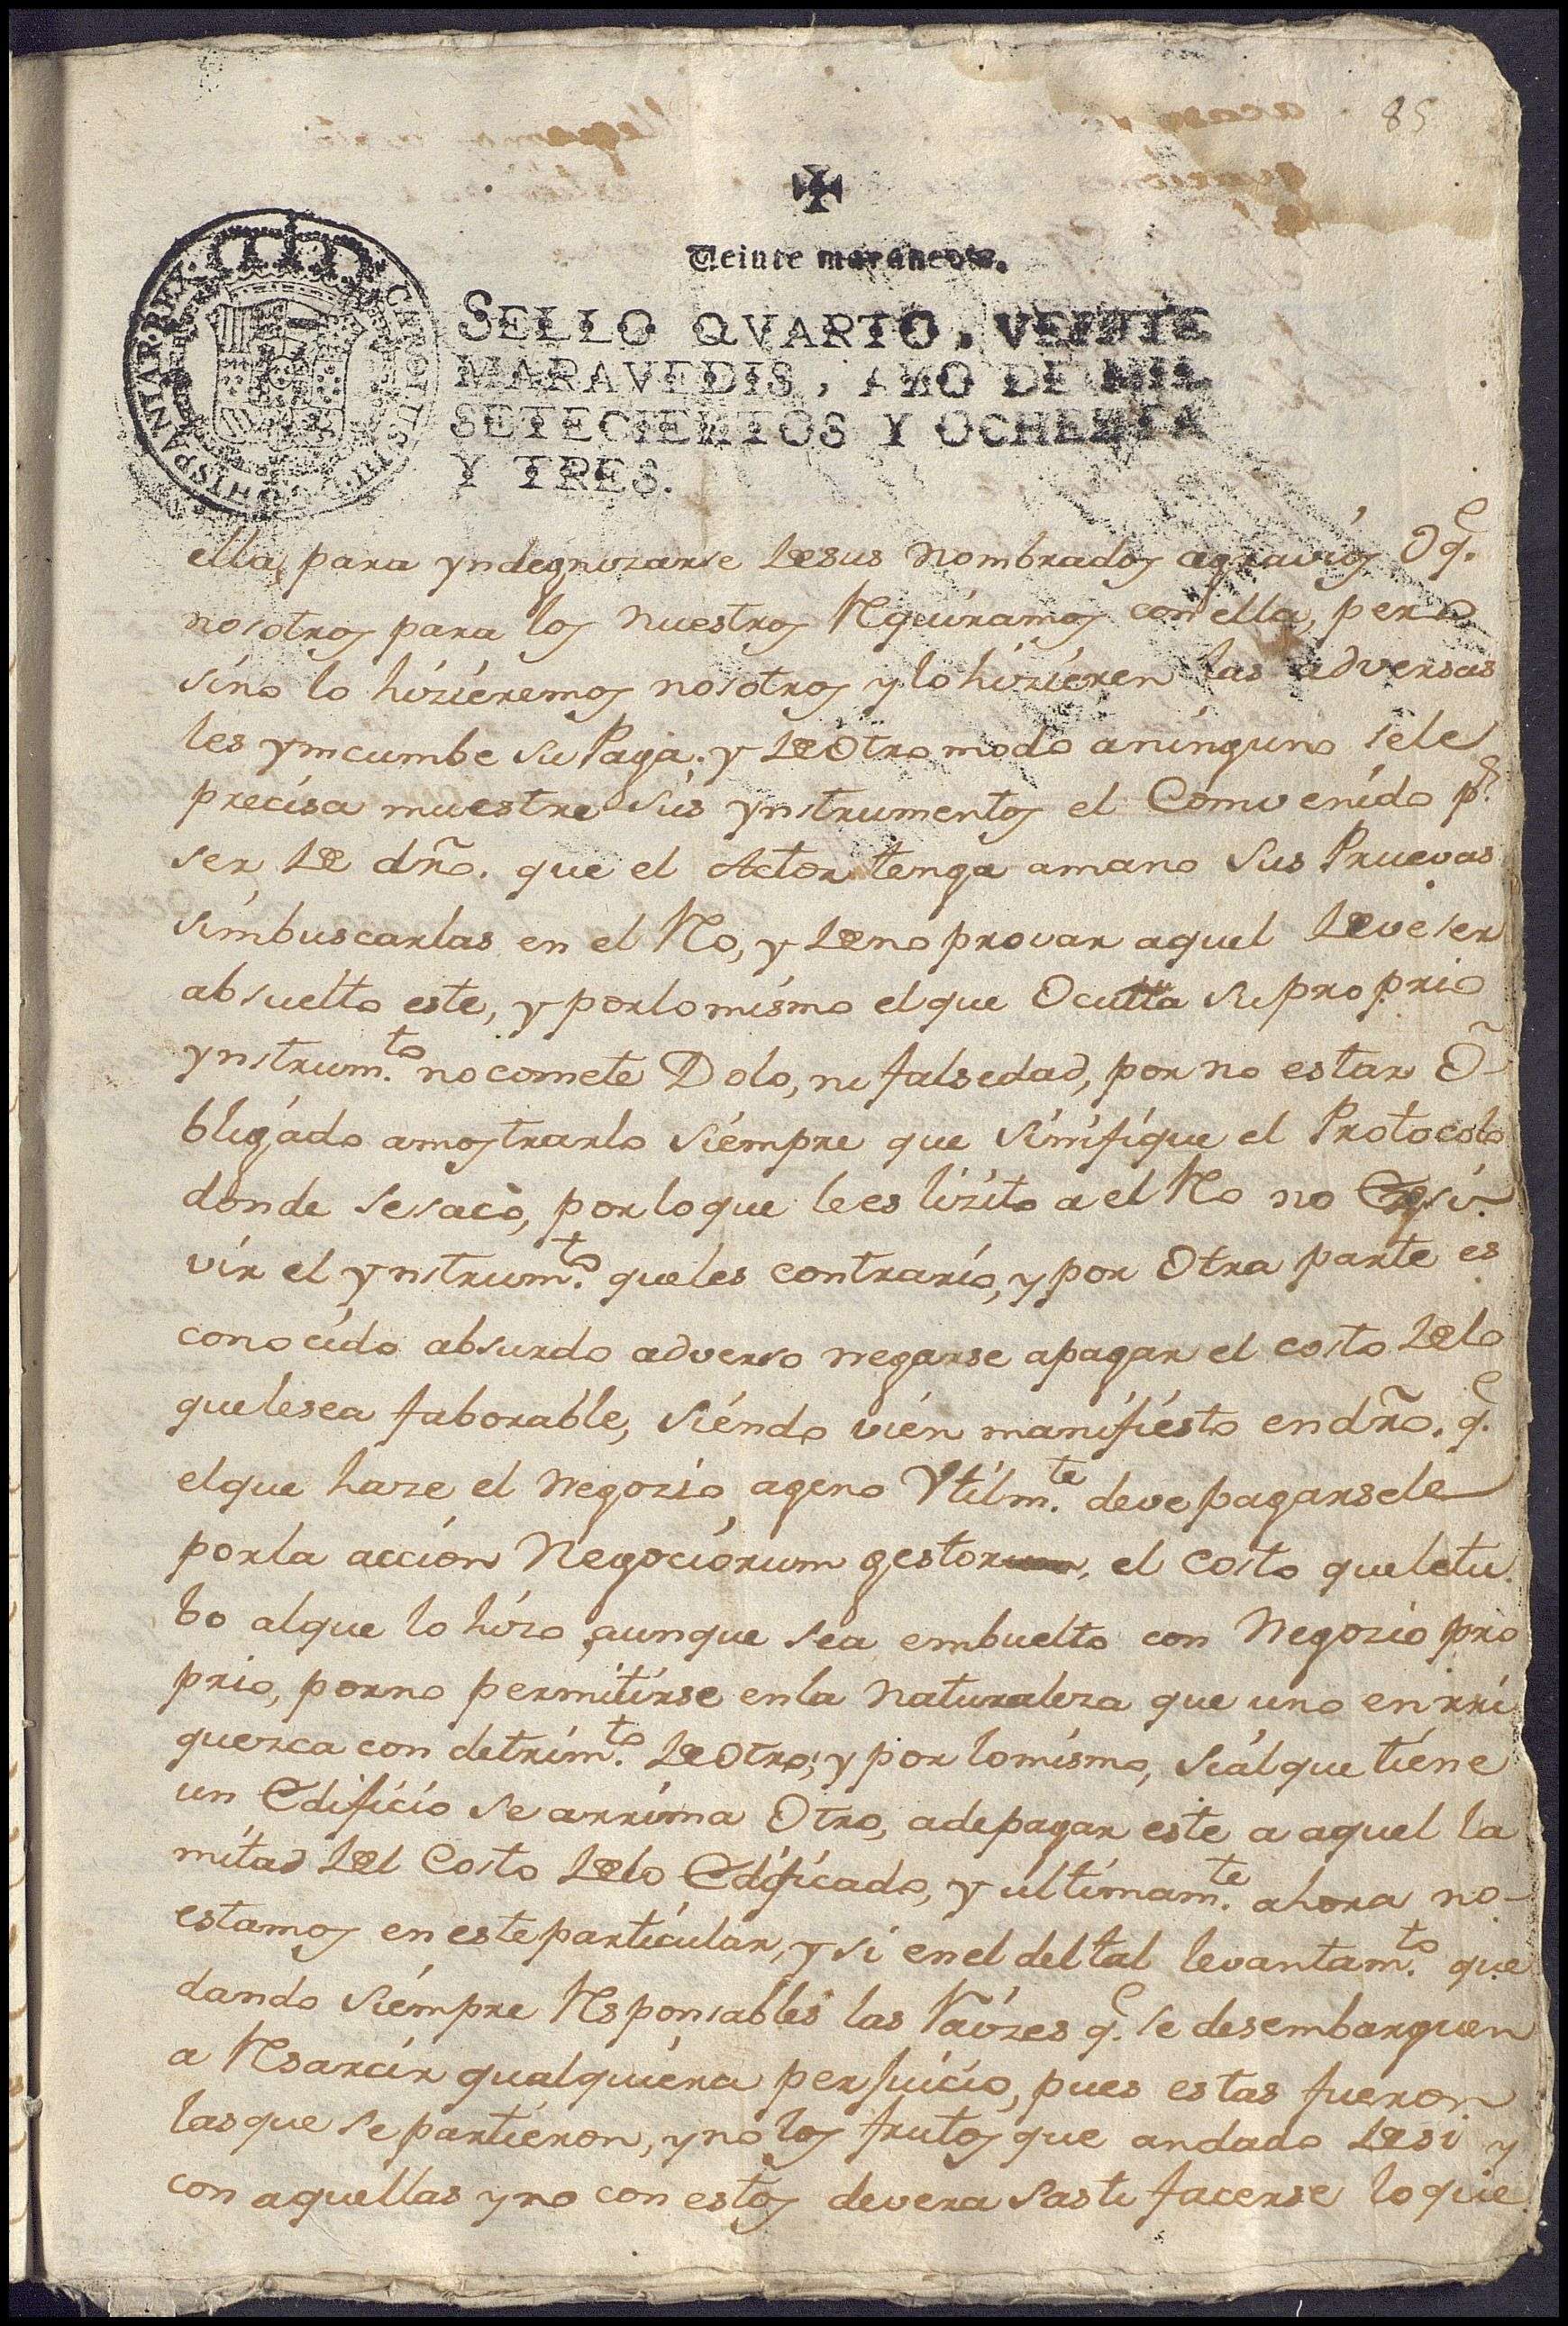 85
Veinte maravedis.
SELLO QVARTO, VEINTE
MARAVEDIS, AÑO DE MIL
SETECIENTOS Y OCHENTA
Y TRES.
HISPANIAR. REX. CAROLUS III. D. G.
ella, para yndegnizarse de sus nombrados agravios O q.e
nosotros para los nuestros Rquiramos con ella, pero
sino lo hizieremos nosotros y lo hizieren las adversas
les ymcumbe su Paga, y de Otro modo aninguno sele
precisa muestre sus ynstrumentos el Comvenido p.r
ser de dño. que el Actor tenga amano sus Pruevas
simbuscarlas en el Ro, y deno provar aquel deve ser
absuelto este, y porlomismo el que Oculta su proprio
ynstrum.to no comete Dolo, ni falsedad, por no estar O-
bligado amostrarlo siempre que sinifique el Protocolo
donde sesacò, porloque lees lizito a el Ro no Exsi-
vir el ynstrum.to queles contrario, y por Otra parte es
conocido absurdo adverso negarse apagar el costo delo
quelesea faborable, siendo vien manifiesto endño. q.e
elque haze el Negozio ageno Vtilm.te deve pagarsele
porla acciòn Negociorum gestorum, el costo queletu-
bo alque lo hizo, aunque sea embuelto con Negozio pro
prio, porno permitirse enla naturaleza que uno enrri
quezca con detrim.to de Otro; y por lomismo, sialque tiene
un Edificio se arrima Otro, adepagar este a aquel la
mitad del Costo delo Edificado, y ultimam.te ahora no-
estamos en este particular, y si enel del tal levantam.to que
dando siempre Rsponsables las Raizes q.e se desembarguen
a Rsarcir qualquiera perjuicio, pues estas fueron
lasque se partieron, y no los frutos que andado desi y
con aquellas y no con estos devera sastifacerse loque